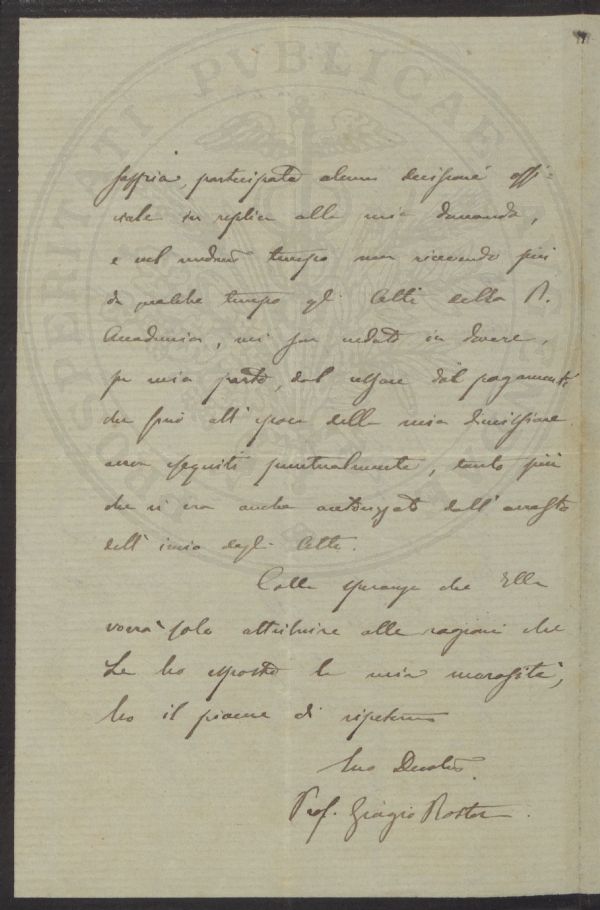 PROSPERITATI PVBLICAE
partecipata alcuna decisione offi=
ciale in replica alla mia domanda,
e nel tempo non ricevendo più
da qualche tempo gli Atti della R.
Accademia, mi in dovere,
per mia parte, dal cessare dal pagamenti
che fino all' epoca della mia dimissione
avea eseguiti puntualmente, tanto più
che vi era anche autorizzato dall' arresto
dell' invio degli Atti.
Colla speranza che Ella
vorrà solo attribuire alle ragioni che
Le ho esposto la mia morosità,
ho il piacere di ripetermi
Suo Devotis.
Prof. Giorgio Roster